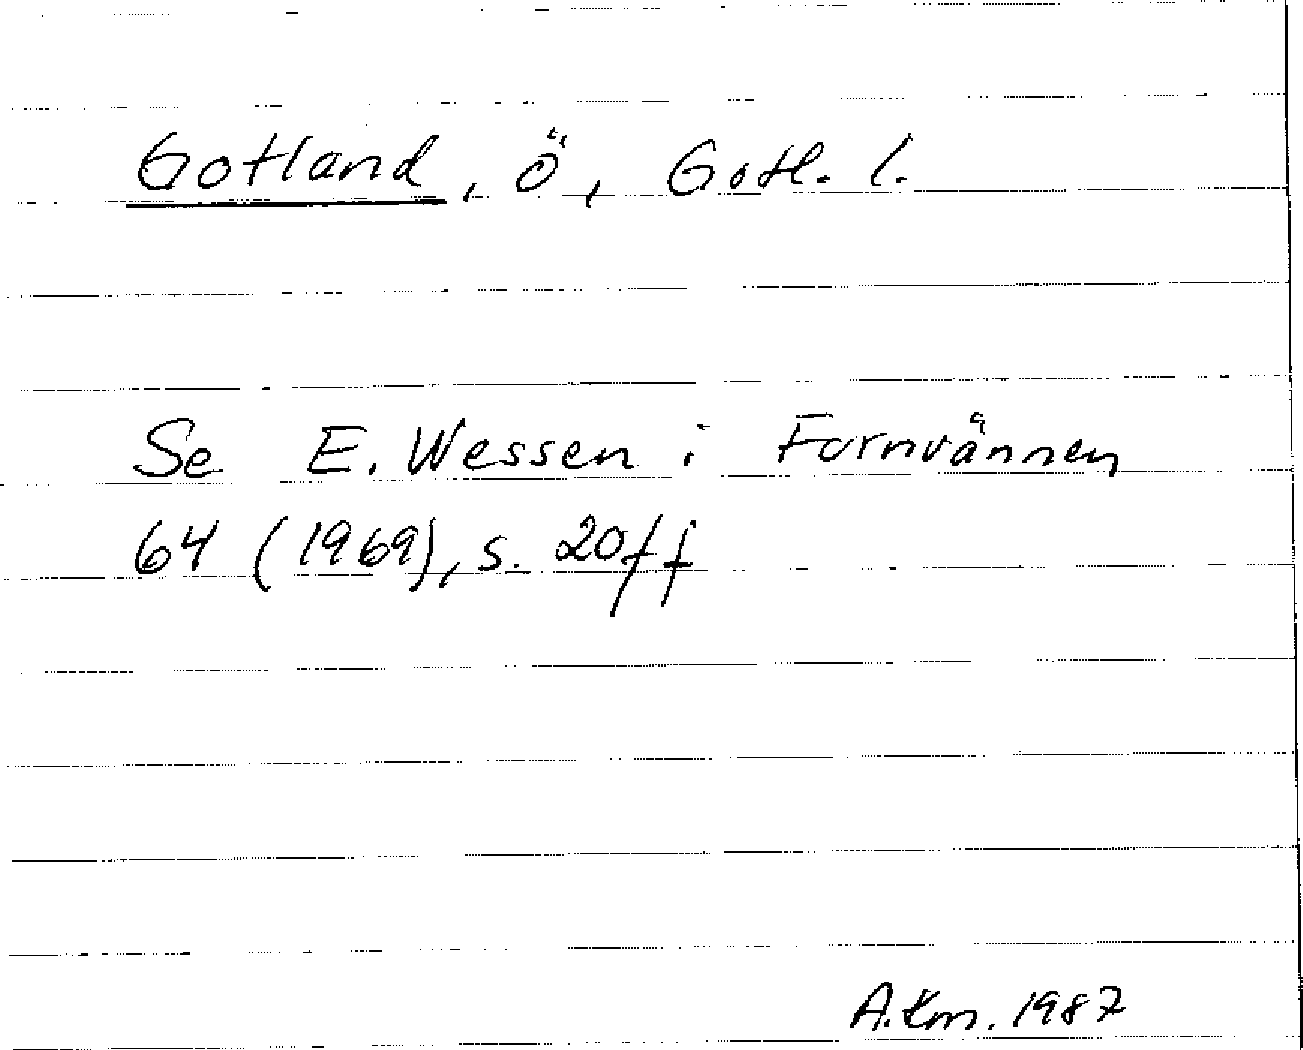 Gotland, ö, Gotl. l.
Se E. Wessen i Fornvännen
64 (1969), s. 20ff
A. Km. 1987